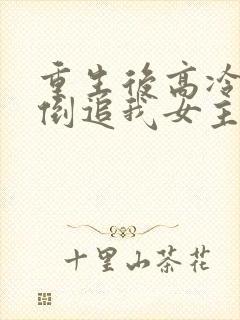 重生後高冷
倒追我女主
十里山茶花